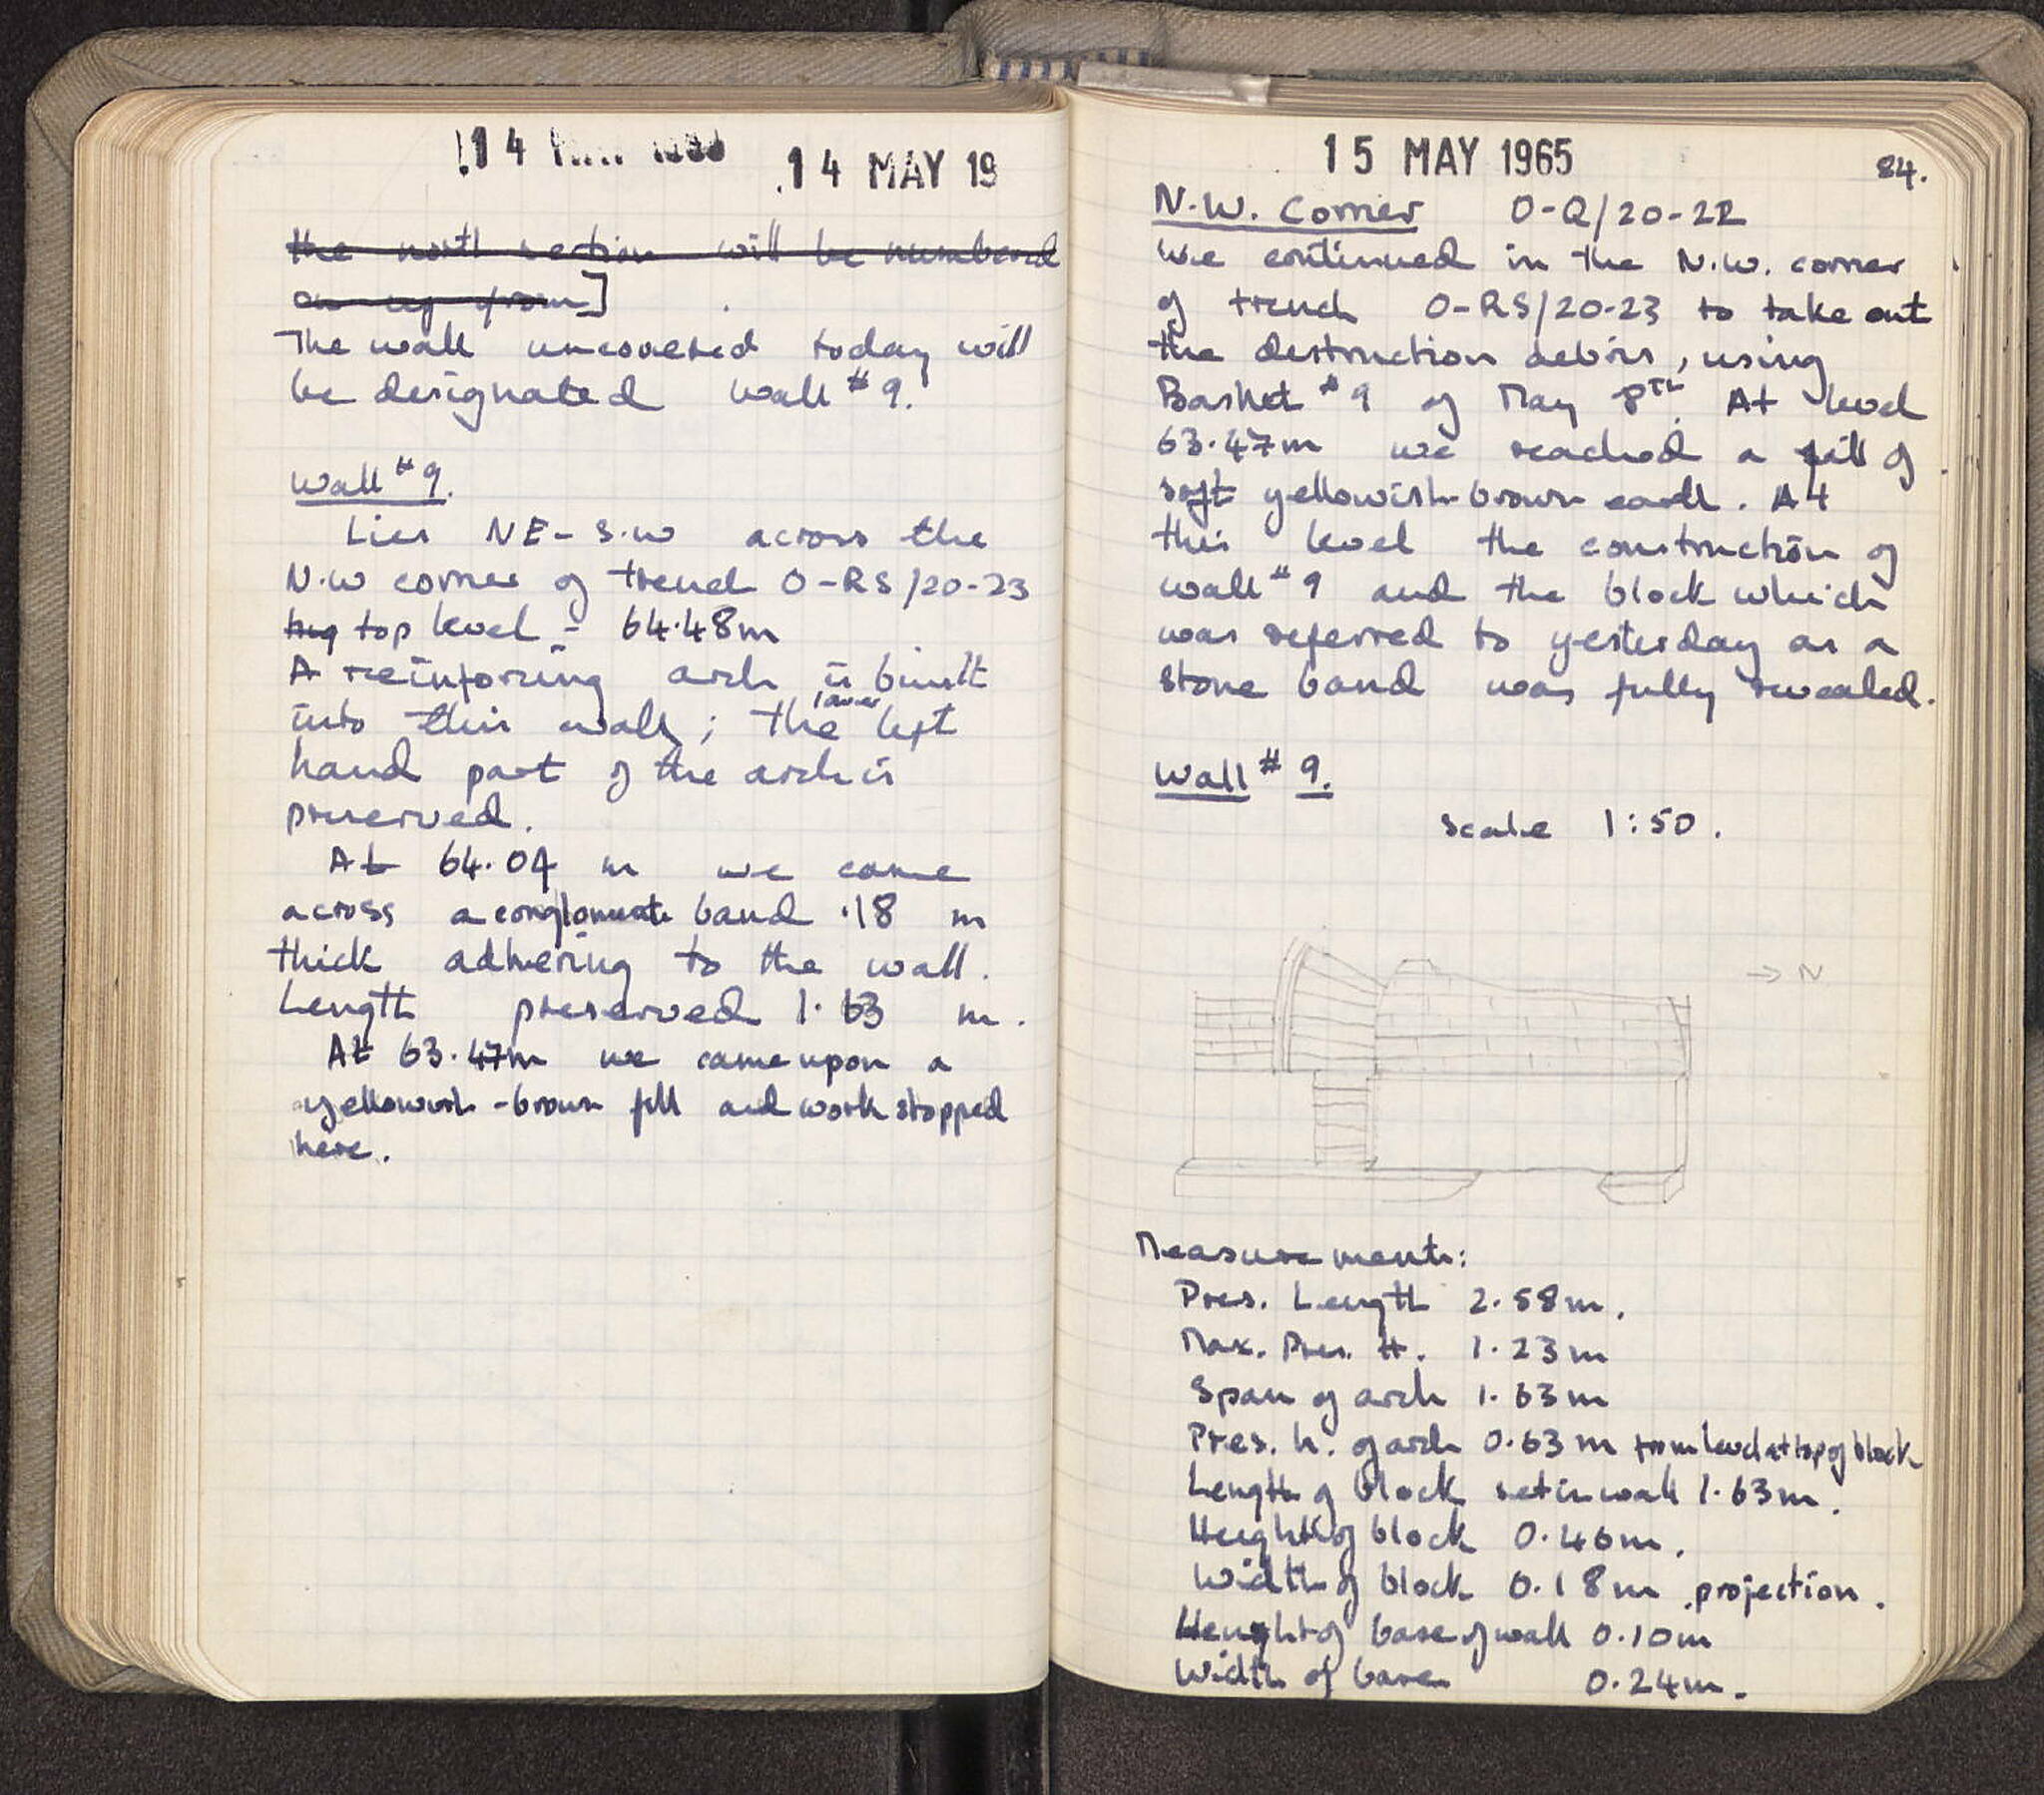 14 MAY 19
the north section will be numbered
on up from]
The wall uncovered today will
be designated wall # 9.
Wall # 9.
Lies NE - S.W across the
N.W corner of trench O-RS/20-23
top level - 64.48m
A reinforcing arch is built
into this wall; the lower left
hand part of the arch is
preserved.
At 64.04 m we came
across a conglomerate band .18 m
thick adhering to the wall.
Length preserved 1.63 m.
At 63.47m we came upon a
yellowish-brown fill and work stopped
here.
15 MAY 1965
84.
N.W. Corner O-Q/20-22
We continued in the N.W. corner
of trench O-RS/20-23 to take out
the destruction debris, using
Basket # 9 of May 8TH. At level
63.47m we reached a fill of
soft yellowish-brown earth. At
this level the construction of
wall # 9 and the block which
was referred to yesterday as a
stone band was fully revealed.
Wall # 9.
scale 1:50.
→ N
Measurements:
Pres. Length 2.58m.
Max. Pres. H. 1.23m
Span of arch 1.63m
Pres. h. of arch 0.63m from level at top of block
Length of block set in wall 1.63m.
Height of block 0.46m.
Width of block 0.18m projection.
Height of base of wall 0.10m
Width of base 0.24m.